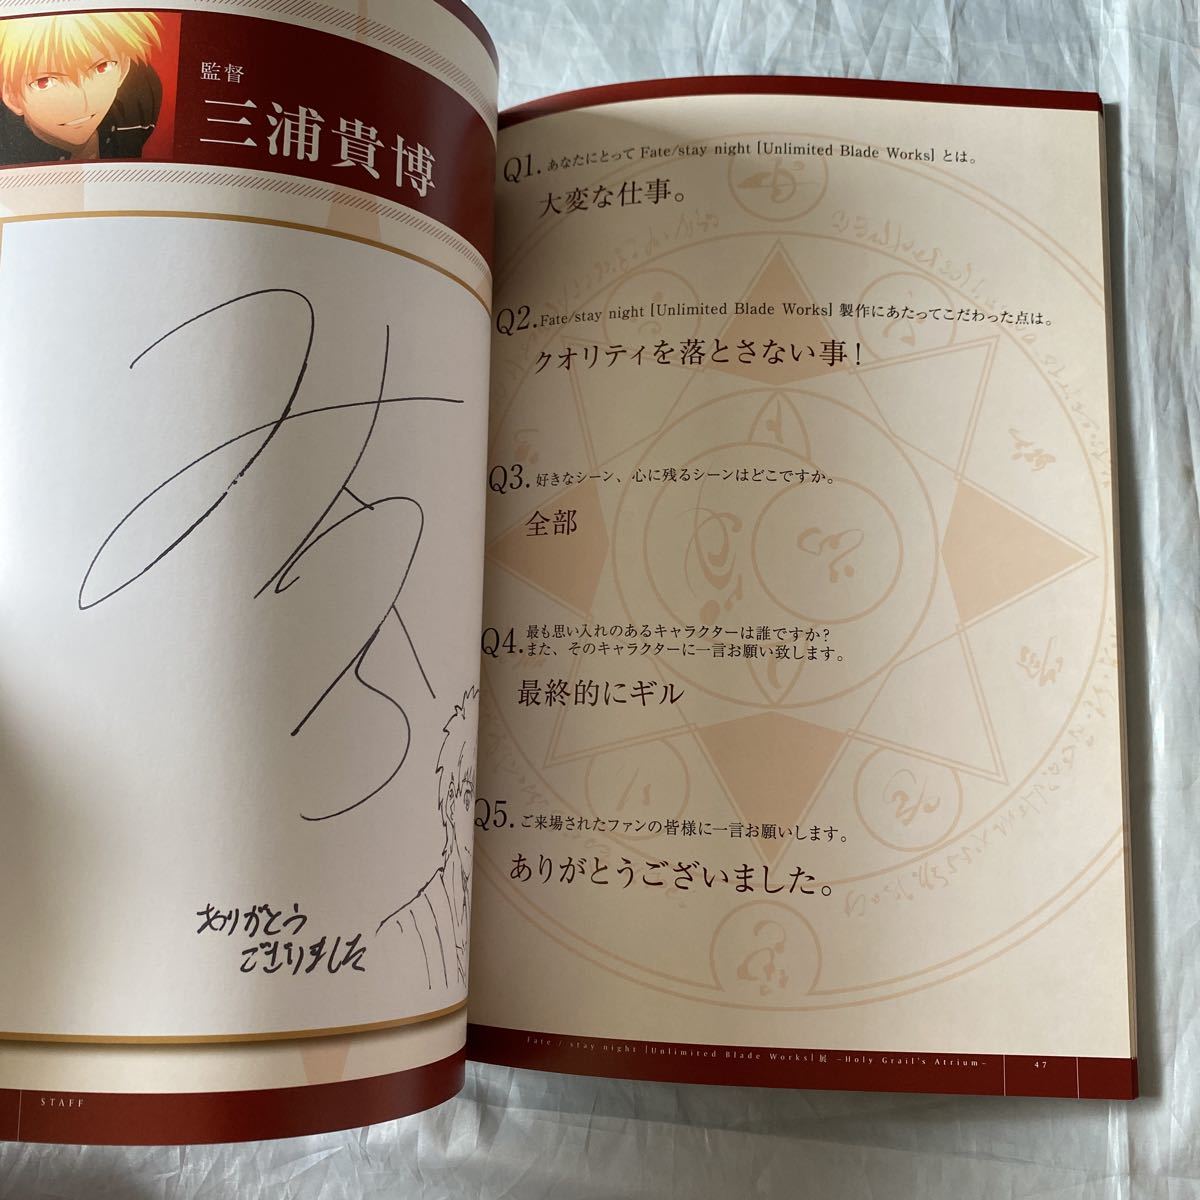 監督
三浦貴博
ありがとう
ございました
STAFF
Q1. あなたにとって Fate/stay night [Unlimited Blade Works] とは。
大変な仕事。
Q2. Fate/stay night [Unlimited Blade Works] 製作にあたってこだわった点は。
クオリティを落とさない事！
Q3. 好きなシーン、心に残るシーンはどこですか。
全部
Q4. 最も思い入れのあるキャラクターは誰ですか？
また、そのキャラクターに一言お願い致します。
最終的にギル
Q5. ご来場されたファンの皆様に一言お願いします。
ありがとうございました。
Fate / stay night [Unlimited Blade Works] 展 –Holy Grail's Atrium–
47